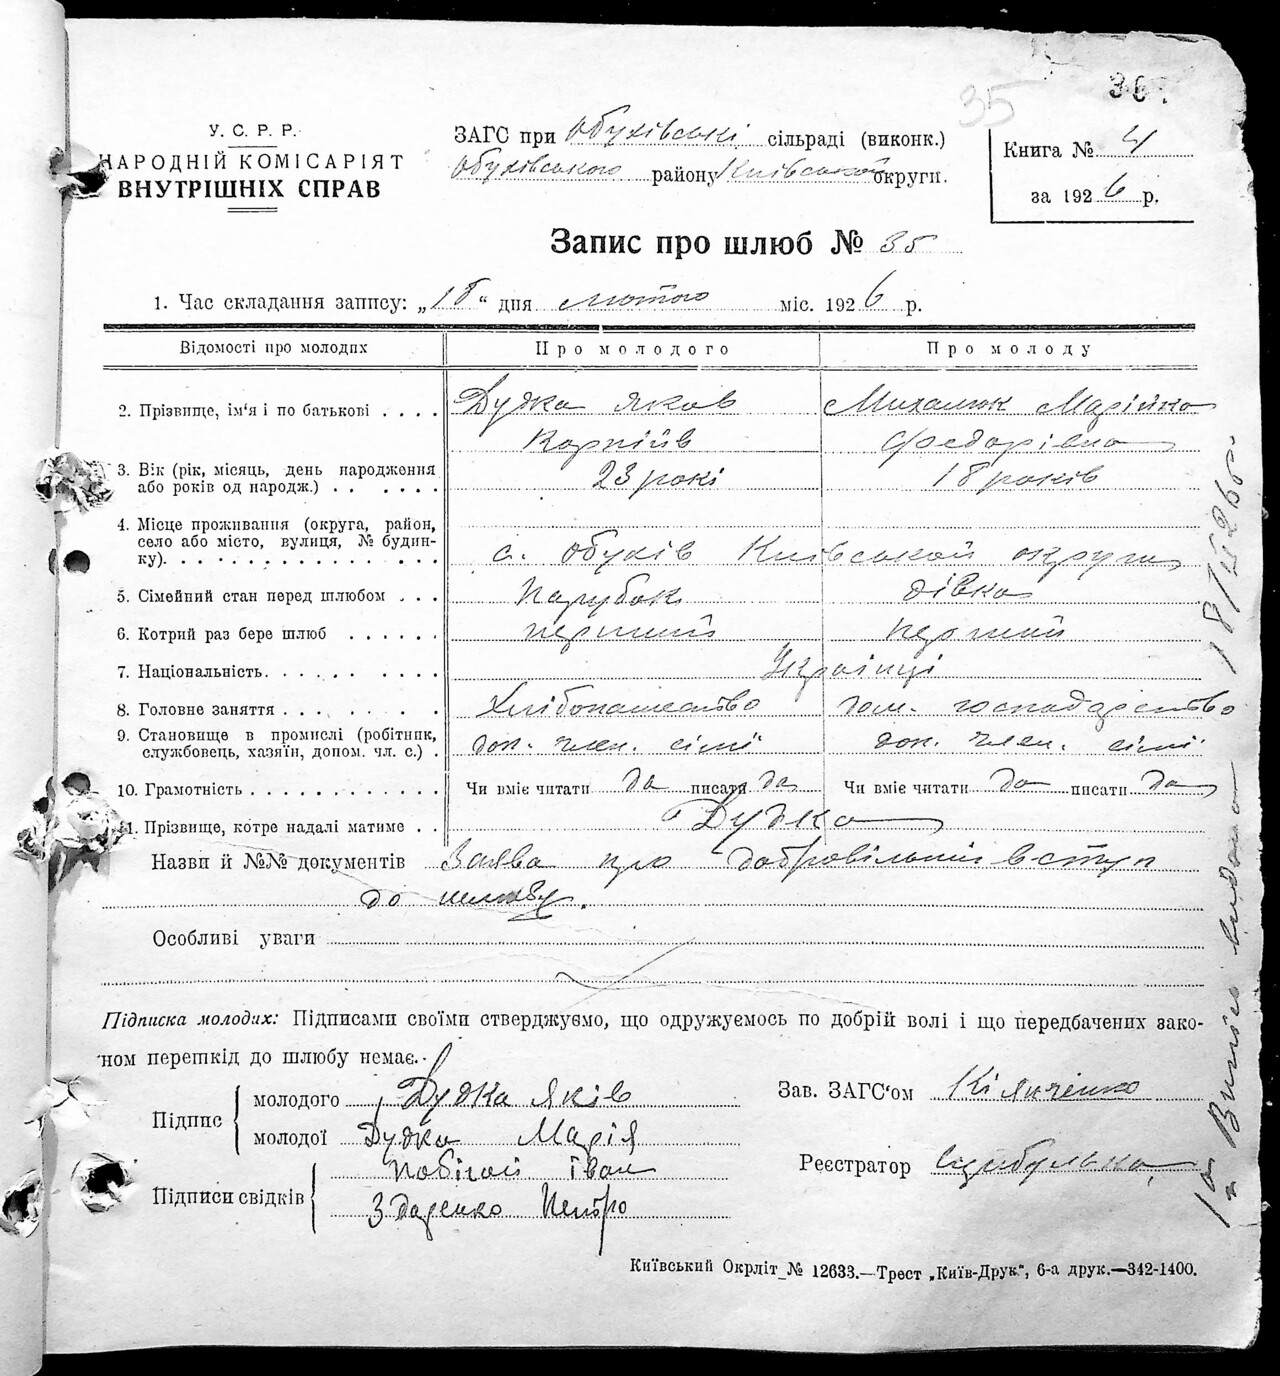 35
36.
У. С. Р. Р.
НАРОДНІЙ КОМІСАРІЯТ
ВНУТРІШНІХ СПРАВ
ЗАГС при Обухівські сільраді (виконк.)
Обухівського району Київської округи.
Книга № 4
за 1926 р.
Запис про шлюб № 35
1. Час складання запису: „18“ дня лютого міс. 1926 р.
Відомості про молодих Про молодого Про молоду
2. Прізвище, ім'я і по батькові . . . . Дудка Яков Михалюк Марійка
Корніїв Федорівна
3. Вік (рік, місяць, день народження 23 рокі 18 років
або років од народж.) . . . . . .
4. Місце проживання (округа, район,
село або місто, вулиця, № будин- с. Обухів Київської округи
ку). . . . . . . . . . . . . . . .
5. Сімейний стан перед шлюбом . . . Парубок дівка
6. Котрий раз бере шлюб . . . . . . перший перший
7. Національність. . . . . . . . . . Українці
8. Головне заняття . . . . . . . . . Хлібопашество дом. господарство
9. Становище в промислі (робітник, доп. член. сімї доп. член. сімї
службовець, хазяїн, допом. чл. с.) .
10. Грамотність . . . . . . . . . . . Чи вміє читати да писати да Чи вміє читати да писати да
11. Прізвище, котре надалі матиме . . Дудка
Назви й №№ документів Заява про добровільний вступ
до шлюбу.
Особливі уваги
Підписка молодих: Підписами своїми стверджуємо, що одружуємось по добрій волі і що передбачених зако-
ном перешкід до шлюбу немає.
Підпис молодого Дудка Яків
молодої Дудка Марія
Зав. ЗАГС'ом Кіяниченко
Підписи свідків Побігай Іван
Здаренко Петро
Реєстратор Цибулька
Випис видано 18/II 26 р.
Київський Окрліт № 12633.—Трест „Київ-Друк“, 6-а друк.—342-1400.